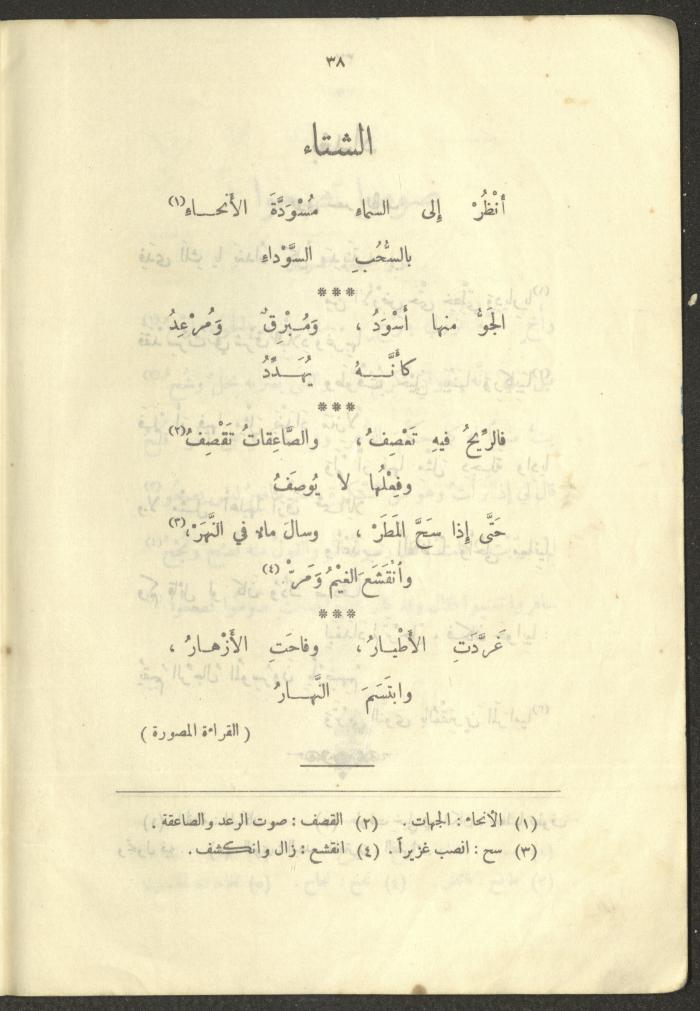 ٣٨
الشتاء
أنْظُرْ إلى السماءِ مُسْوَدَّةَ الأنحاءِ(١)
بالسُّحُبِ السَّوْداءِ
***
الجَوُّ منها أسْوَدُ ، وَمُبْرِقٌ وَمُرْعِدُ
كأنَّهُ يُهَدِّدُ
***
فالرِّيحُ فيهِ تَعْصِفُ ، والصَّاعِقاتُ تَقْصِفُ(٢)
وفِعْلُها لا يُوصَفُ
حَتَّى إذا سَحَّ المَطَرْ ، وسالَ مالا في النَّهَرْ ،(٣)
وأنْقَشَعَ الغَيْمُ وَمَرّْ (٤)
***
غَرَّدَتِ الأَطْيارُ ، وفاحَتِ الأَزْهارُ ،
وابتَسَمَ النَّهارُ
( القراءة المصورة )
(١) الأنحاء : الجهات . (٢) القصف : صوت الرعد والصاعقة .
(٣) سح : انصب غزيراً . (٤) انقشع : زال وانكشف .